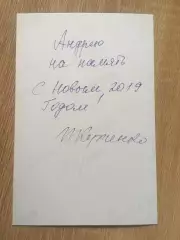 Андрею
на память
С Новым, 2019
Годом!